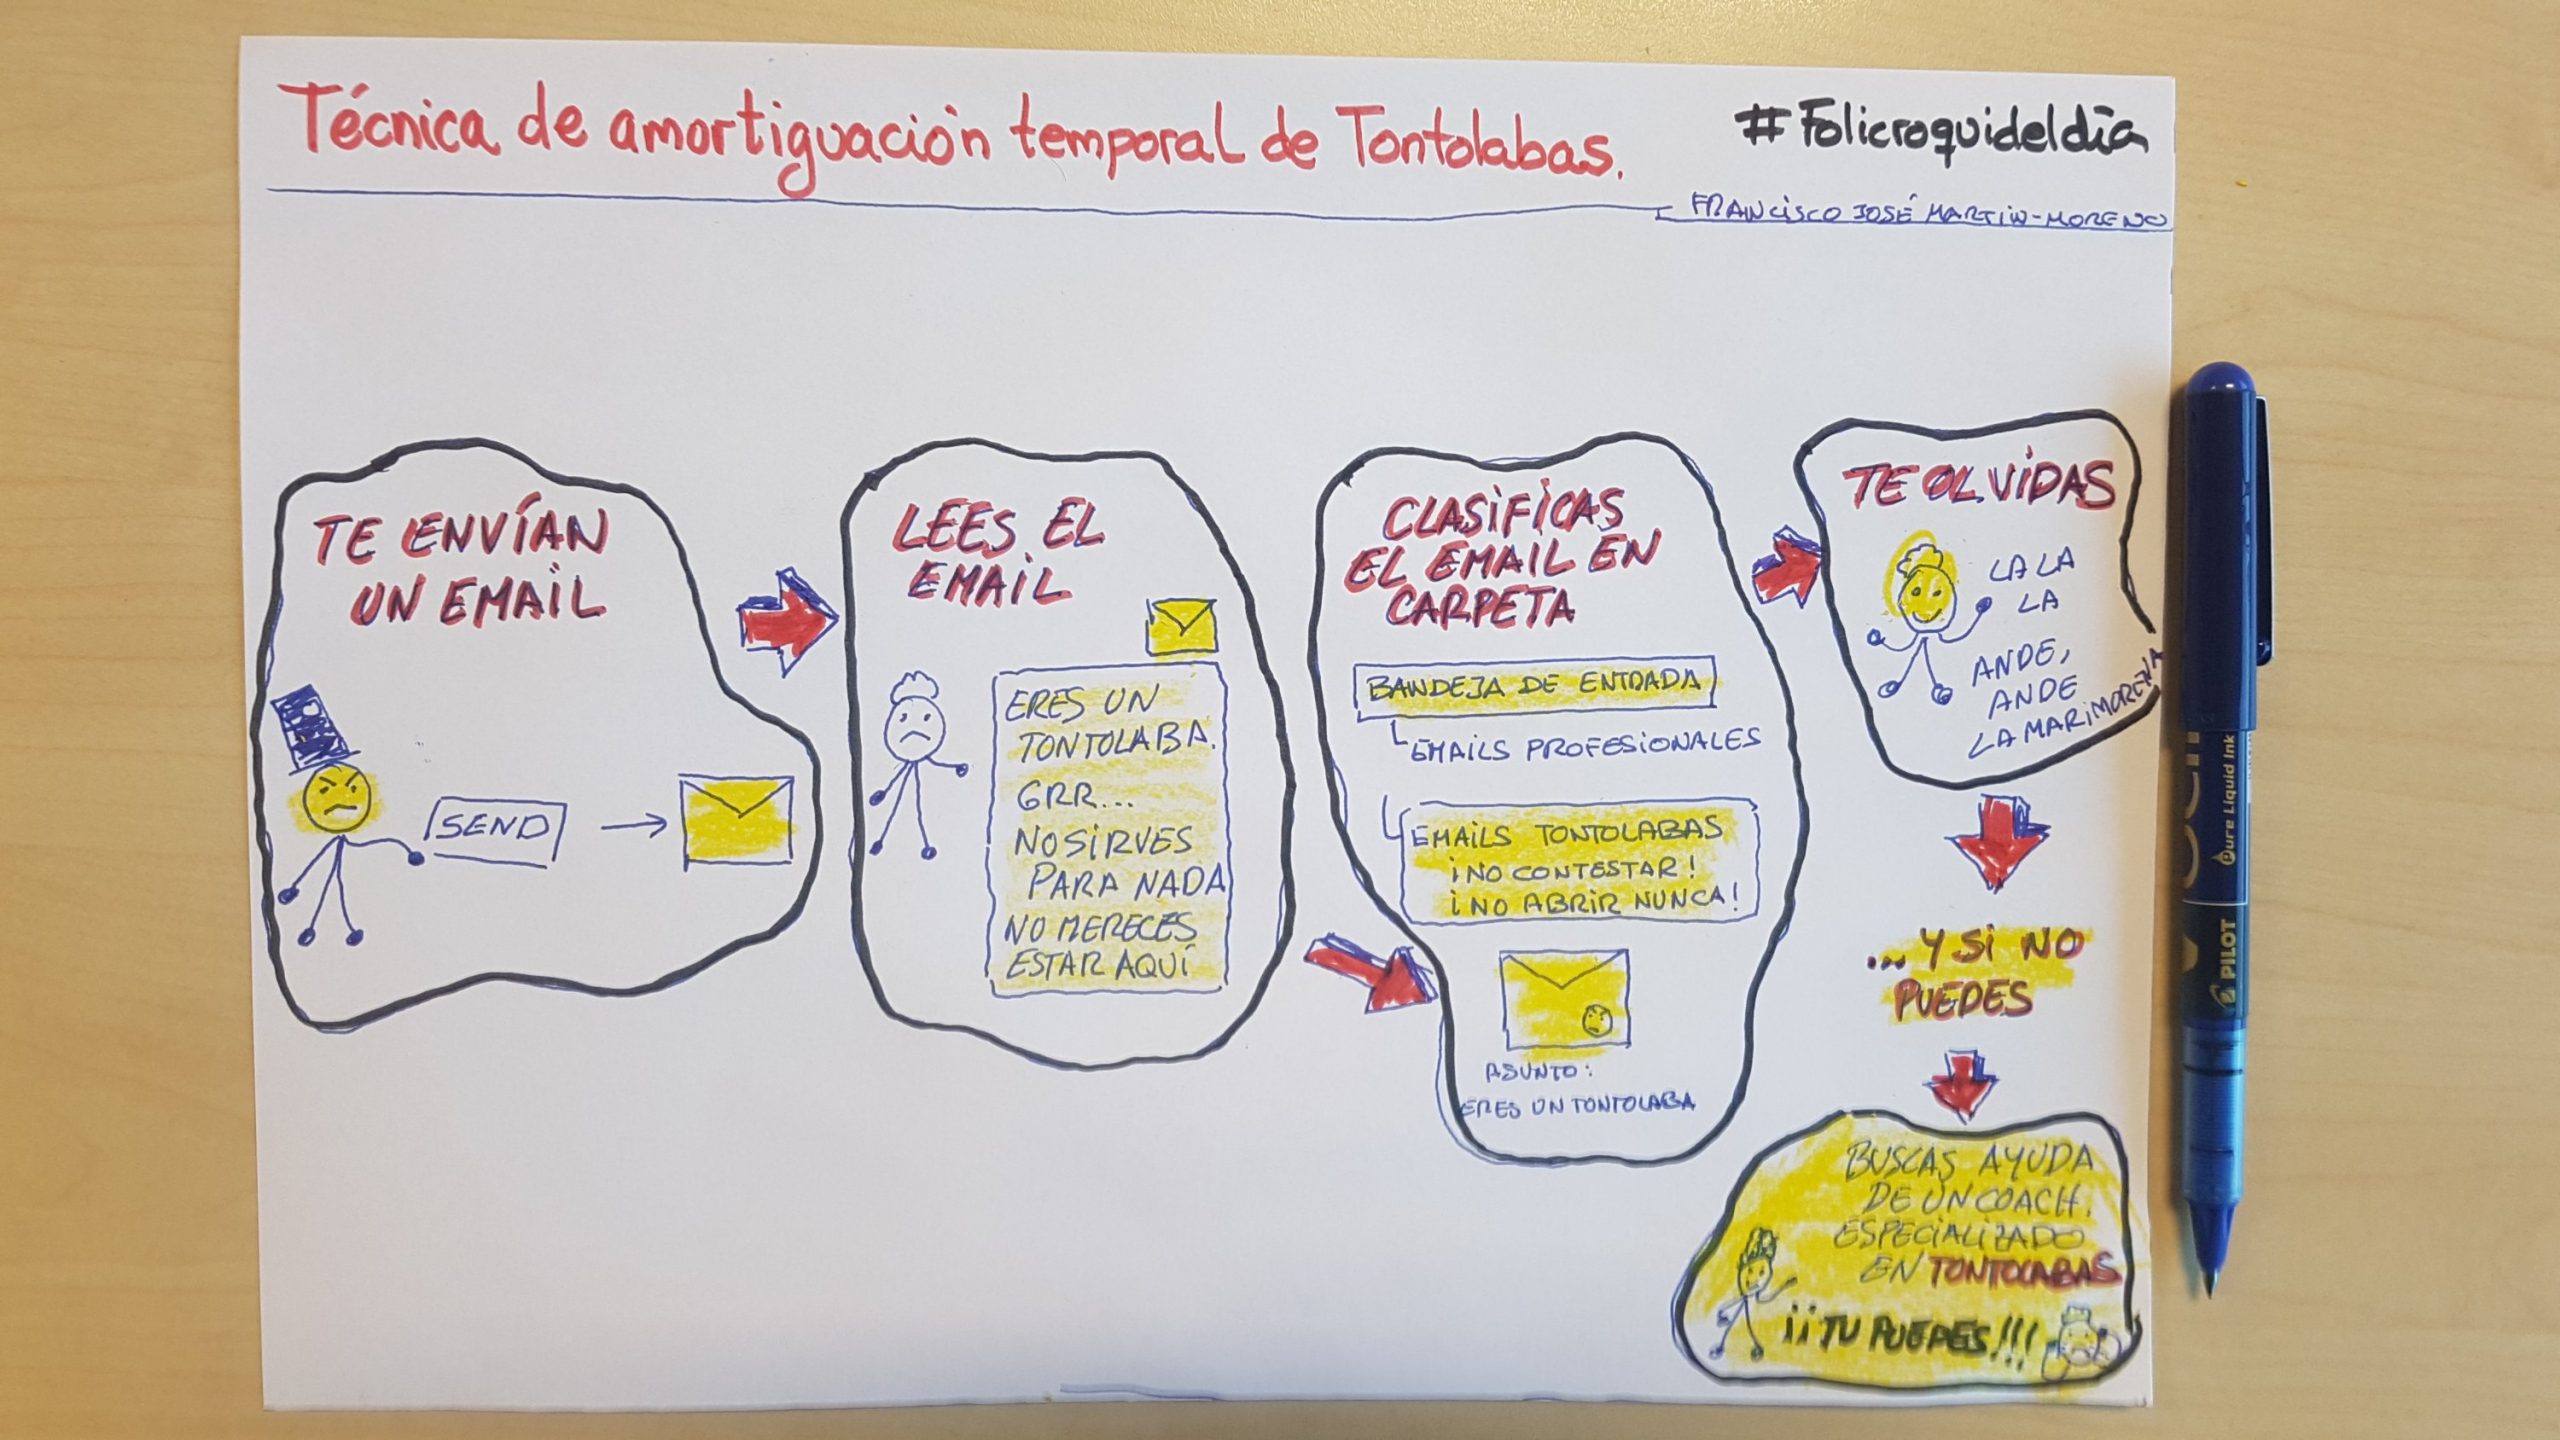 Técnica de amortiguación temporal de Tontolabas.
#Folicroquideldía
FRANCISCO JOSÉ MARTIN-MORENO
TE ENVÍAN
UN EMAIL
SEND
LEES EL
EMAIL
ERES UN
TONTOLABA.
GRR...
NO SIRVES
PARA NADA
NO MERECES
ESTAR AQUÍ
CLASIFICAS
EL EMAIL EN
CARPETA
BANDEJA DE ENTRADA
EMAILS PROFESIONALES
EMAILS TONTOLABAS
¡NO CONTESTAR!
¡NO ABRIR NUNCA!
ASUNTO:
ERES UN TONTOLABA
TE OLVIDAS
LA LA
LA
ANDE,
ANDE
LA MARIMORENA
...Y SI NO
PUEDES
BUSCAS AYUDA
DE UN COACH.
ESPECIALIZADO
EN TONTOLABAS
¡¡TU PUEDES!!!
PILOT
Pure Liquid Ink